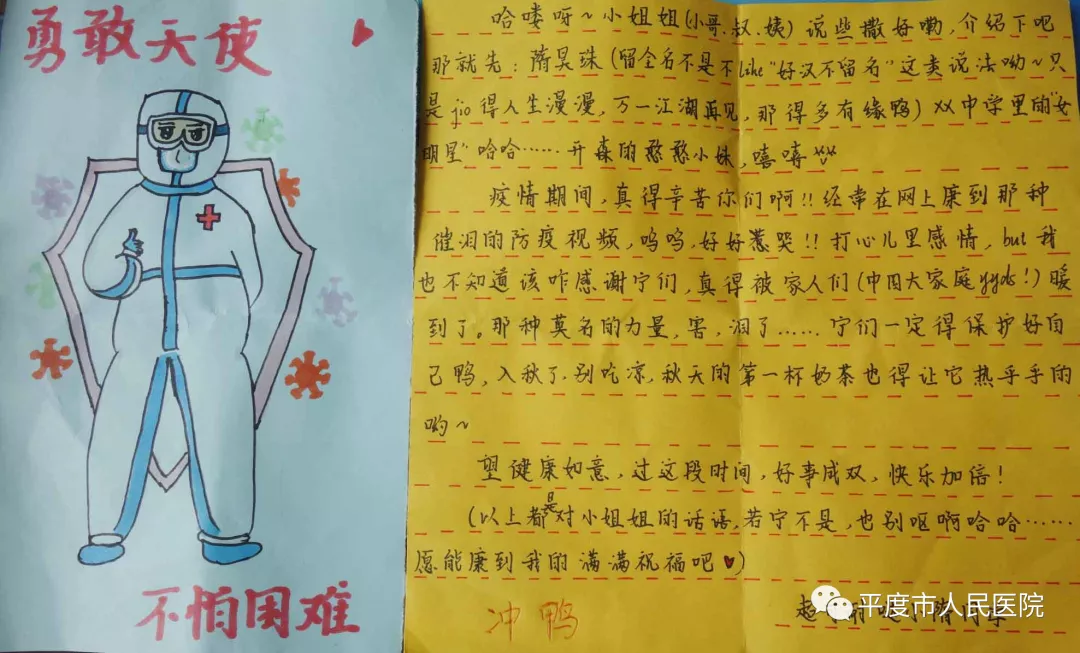 勇敢天使
不怕困难
哈喽呀~小姐姐(小哥.叔.姨)说些撒好嘞,介绍下吧
那就先:隋昊珠(留全名不是不like"好汉不留名"这类说法呦~只
是jio得人生漫漫,万一江湖再见,那得多有缘鸭)XX中学里的"女
明星"哈哈……开森的憨憨小妹,嘻嘻
疫情期间,真得辛苦你们啊!!经常在网上康到那种
催泪的防疫视频,呜呜,好好惹哭!!打心儿里感情,but我
也不知道该咋感谢宁们,真得被家人们(中国大家庭yyds!)暖
到了。那种莫名的力量,害,泪了……宁们一定得保护好自
己鸭,入秋了,别吃凉,秋天的第一杯奶茶也得让它热乎乎的
哟~
望健康如意,过这段时间,好事成双,快乐加倍!
(以上都是对小姐姐的话语,若宁不是,也别呕啊哈哈……
愿能康到我的满满祝福吧♥)
冲鸭
平度市人民医院